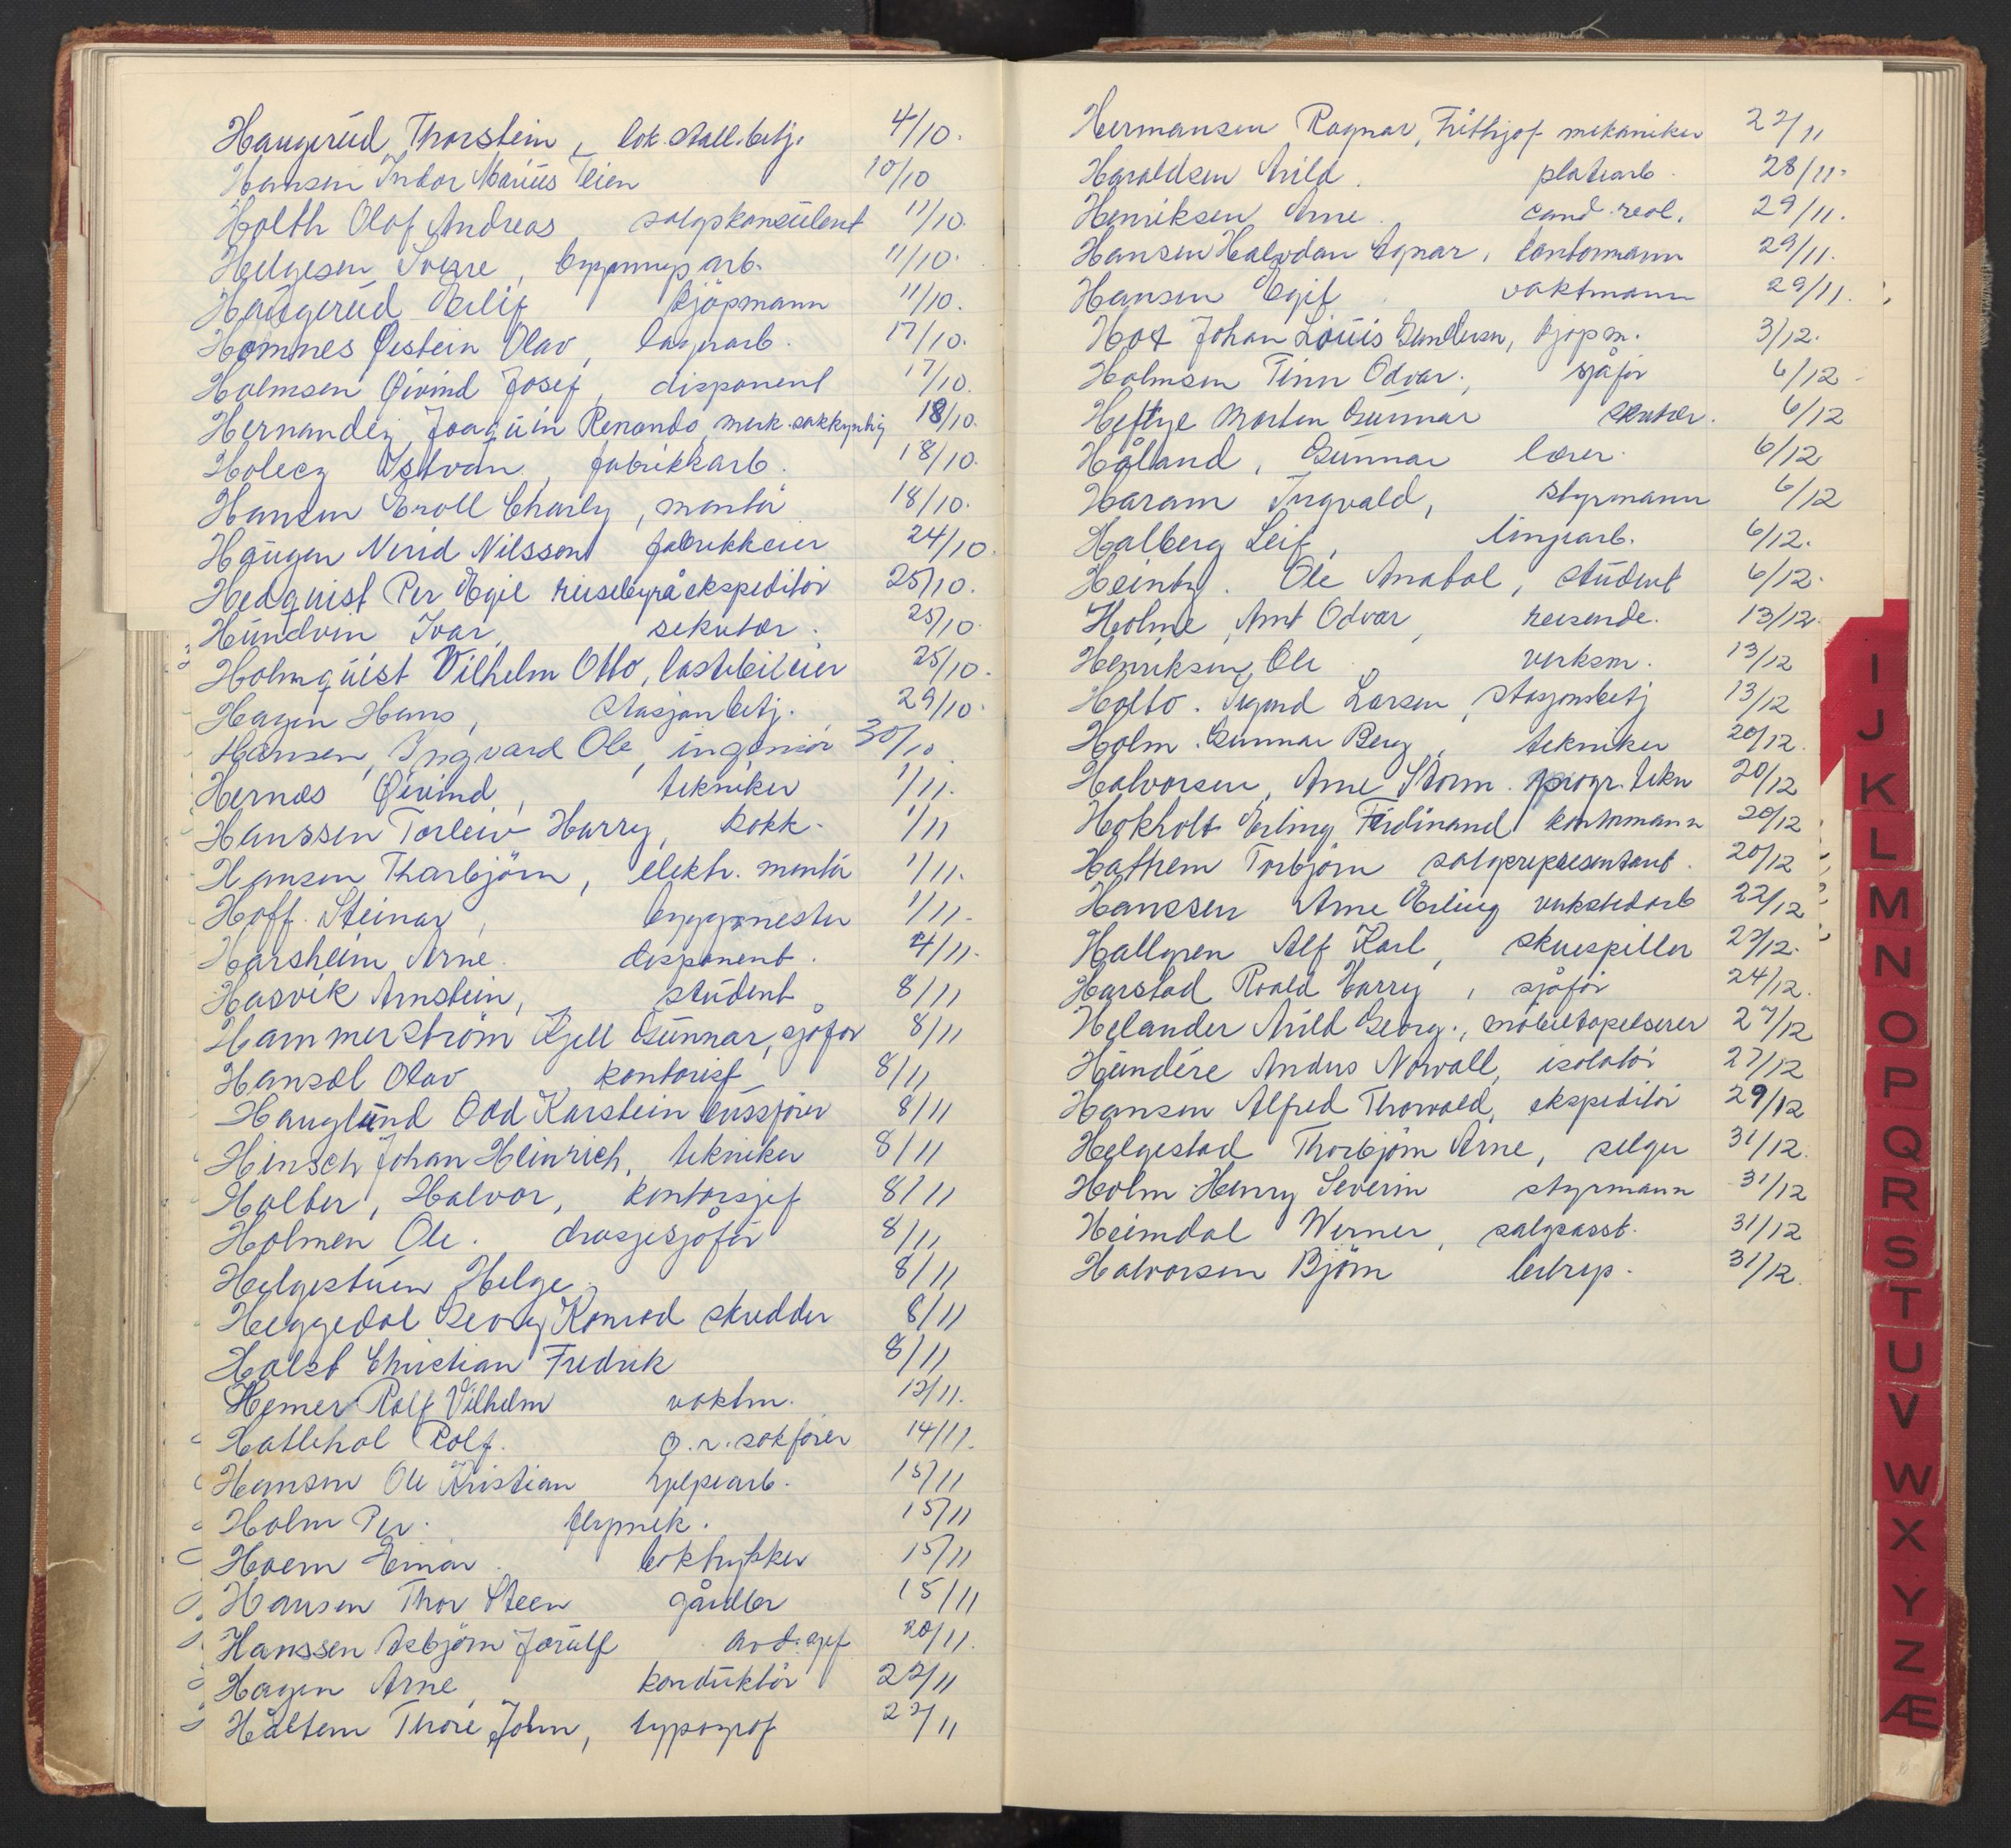 Haugerud Thorstein, lok.stall.betj. 4/10.
Hansen Indor Marius Teien 10/10
Holth Olaf Andreas, salgskonsulent 11/10.
Helgesen Sverre, bygnings arb. 11/10.
Haugerud Erlif kjöpmann 11/10.
Homnes Øistein Olav, lagerarb. 17/10.
Holmsen Øivind Josef, disponent 17/10.
Hernandez, Joaquin Renando, merk.sakkyndig 18/10.
Holecz Istvan, fabrikkarb. 18/10.
Hansen Eroll Charly, montör 18/10.
Haugen Nerid Nilsson fabrikkeier 24/10.
Hedquist Per Egil reisebyråekspeditör 25/10.
Hundvin Ivar, sekretær. 25/10.
Holmquist Vilhelm Otto, lastebileier 25/10.
Hagen Hans, stasjonbetj. 29/10.
Hansen, Ingvard Ole, ingeniör 30/10.
Hernæs Øivind, tekniker 1/11.
Hanssen Torleiv Harry, kokk. 1/11
Hansen Thorbjörn, elektr. montör 1/11.
Hoff. Steinar, byggmester 1/11.
Harsheim Arne. disponent. 4/11.
Hasvik Arnstein, student 8/11
Hammerström Kjell Gunnar, sjåför 8/11
Hansæl Olav kontorist 8/11
Hauglund Odd Karstein bussjörer 8/11
Hinsch Johan Heinrich, tekniker 8/11
Holter, Halvor, kontorsjef 8/11
Holmen Ole. drosjesjåför 8/11
Helgestuen Helge. 8/11
Heggedal Georg Konrad skredder 8/11
Holst Christian Fredrik 8/11
Hemer Rolf Vilhelm vaktm. 12/11.
Hatlehol Rolf. o.r.sakförer 14/11.
Hansen Ole Kristian hjelpearb. 15/11
Holm Per. flymek. 15/11
Hoem Einar. boktrykker 15/11
Hansen Thor Steen gårdbr 15/11
Hanssen Asbjörn Jorulf avd.sjef 20/11.
Hagen Arne, konduktör 22/11
Håltem Thore John, typograf 22/11
Hermansen Ragnar, Frithjof mekaniker 22/11
Haraldsen Arild. platearb. 28/11.
Henriksen Arne. cand.real. 29/11.
Hansen Halvdan Egnar, kontormann 29/11.
Hansen Egil vaktmann 29/11.
Hox Johan Louis Gundersen, kjöpm. 3/12.
Holmsen Finn Odvar. sjåför 6/12
Heftye Morten Gunnar sekretær. 6/12
Håland, Gunnar lærer. 6/12
Haram Ingvald, styrmann 6/12
Halberg Leif, linjearb. 6/12.
Heintz. Ole Anatol, student 6/12.
Holme, Arnt Odvar, reisende. 13/12.
Henriksen, Ole verksm. 13/12
Holto. Sigurd Larsen, stasjonsbetj 13/12
Holm. Gunnar Berg, tekniker 20/12.
Halvorsen, Arne Storm. progr.tekn 20/12
Hokholt Erling Ferdinand kontormann 20/12
Hattrem Torbjörn salgsrepresentant. 20/12
Hanssen Arne Erling verkstedarb 22/12
Hallgren Alf Karl, skuespiller 23/12.
Harstad Roald Harry, sjåför 24/12.
Helander Arild Georg., möbeltapetserer 27/12
Hundére Anders Norvall, isolatör 27/12
Hansen Alfred Thorvald, ekspeditör 29/12
Helgestad Thorbjörn Arne, selger 31/12.
Holm Henry Severin styrmann 31/12
Heimdal Werner, salgsasst. 31/12
Halvorsen Björn betrep. 31/12.
I
J
K
L
M
N
O
P
Q
R
S
T
U
V
W
X
Y
Z
Æ